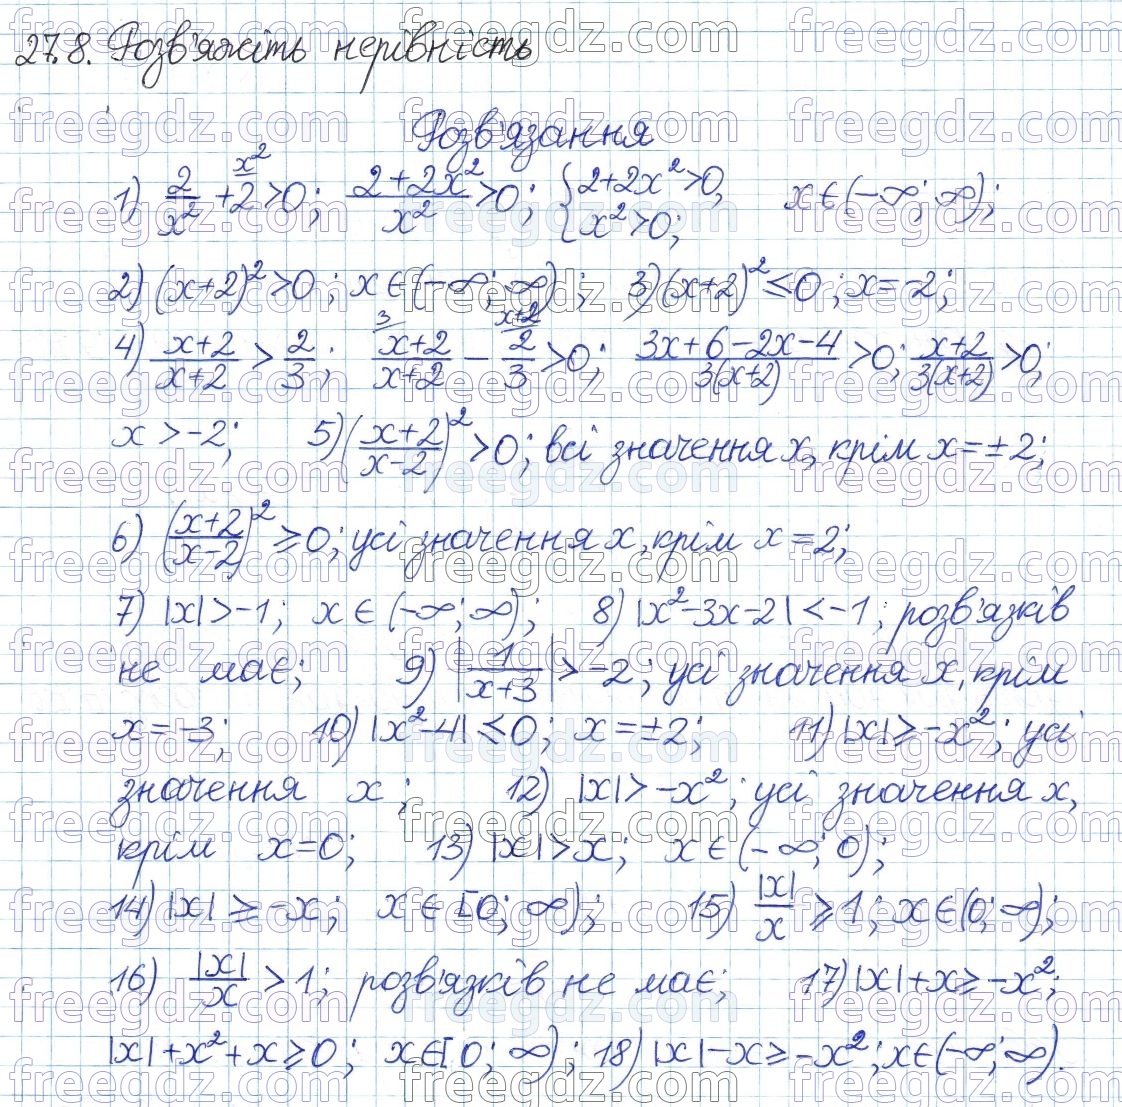 27.8. Розв'яжіть нерівність
Розв'язання
1) 2/x² + 2 (x²) > 0; (2+2x²)/x² > 0; { 2+2x² > 0, x² > 0; x ∈ (-∞; ∞);
2) (x+2)² > 0; x ∈ (-∞; ∞); 3) (x+2)² ≤ 0; x = -2;
4) (x+2)/(x+2) > 2/3; (3) (x+2)/(x+2) - (x+2) 2/3 > 0; (3x+6-2x-4)/(3(x+2)) > 0; (x+2)/(3(x+2)) > 0;
x > -2; 5) ((x+2)/(x-2))² > 0; всі значення x, крім x = ±2;
6) ((x+2)/(x-2))² ≥ 0; усі значення x, крім x = 2;
7) |x| > -1; x ∈ (-∞; ∞); 8) |x²-3x-2| < -1; розв'язків
не має; 9) |1/(x+3)| > -2; усі значення x, крім
x = -3; 10) |x²-4| ≤ 0; x = ±2; 11) |x| ≥ -x²; усі
значення x; 12) |x| > -x²; усі значення x,
крім x=0; 13) |x| > x; x ∈ (-∞; 0);
14) |x| ≥ -x; x ∈ [0; ∞); 15) |x|/x ≥ 1; x ∈ (0; ∞);
16) |x|/x > 1; розв'язків не має; 17) |x| + x ≥ -x²;
|x| + x² + x ≥ 0; x ∈ [0; ∞); 18) |x| - x ≥ -x²; x ∈ (-∞; ∞).
freegdz.com